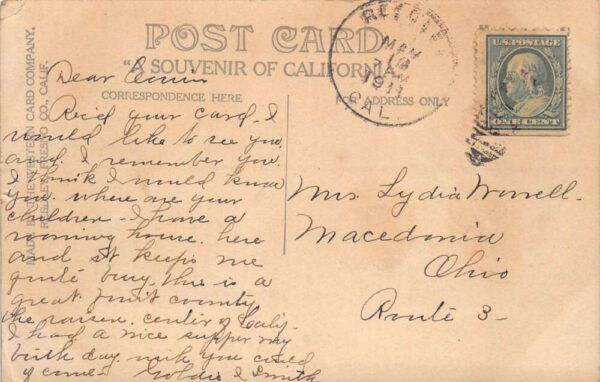 POST CARD
"A SOUVENIR OF CALIFORNIA
CORRESPONDENCE HERE
FOR ADDRESS ONLY
MAR
1911
CAL.
U.S. POSTAGE
ONE CENT
CARD COMPANY,
FRESNO CO., CALIF.
Dear
Rec'd your card. I
would like to see you
and I remember you
I think I would know
you. where are your
children - I have a
rooming house. here
and it keeps me
quite busy. this is a
great fruit county
the raisen center of Calif-
I had a nice supper my
birth day. wish you could
of come - Goldie I Smith
Mrs. Lydia Worrell.
Macedonia
Ohio
Route 3-